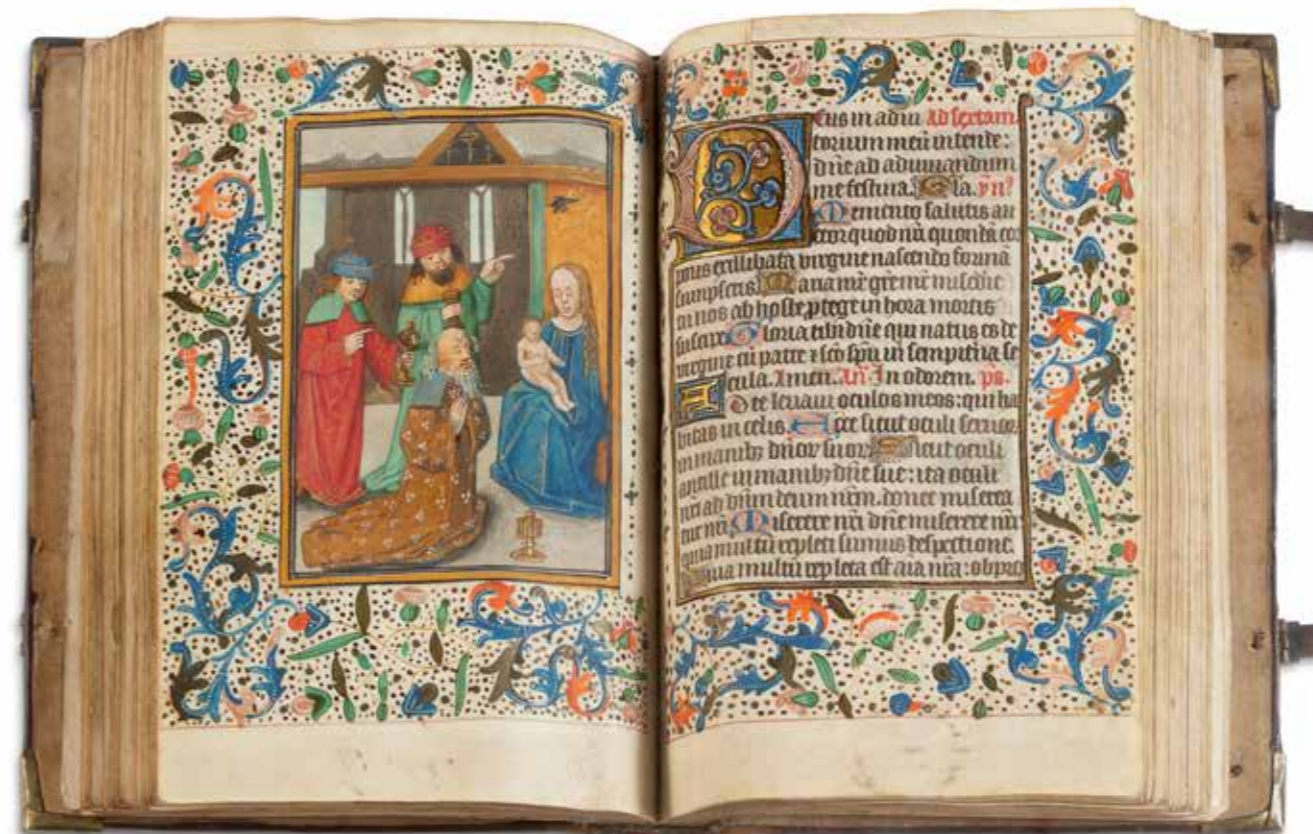 Deus in adiu Ad sextam
torium meū intende:
dn̄e ad adiuuandum
me festina. Gla. ẏn̄?
Memento salutis au
ctor quod nr̄i quondā cor
poris ex illibata virgine nascendo formā
sumpseris. Maria mr̄ grē mr̄ miẜcdie
tu nos ab hoste ꝓtege in hora mortis
suscipe Gloria tibi dn̄e qui natus es de
virgine cū patre ⁊ scō spū in sempit̄na se
cula. Amen. An̄ In odorem. ps.
Ad te leuaui oculos meos: qui ha
bitas in celis. Ecce sicut oculi seruor
in manibꝫ dn̄or suor Sicut oculi
ancille in manibꝫ dn̄e sue: ita oculi
nr̄i ad dn̄m deum nr̄m. donec miserea
tur nr̄i Miserere nr̄i dn̄e miserere nr̄i
quia multū repleti sumus despectione.
Quia multū repleta est aīa nr̄a: obpro